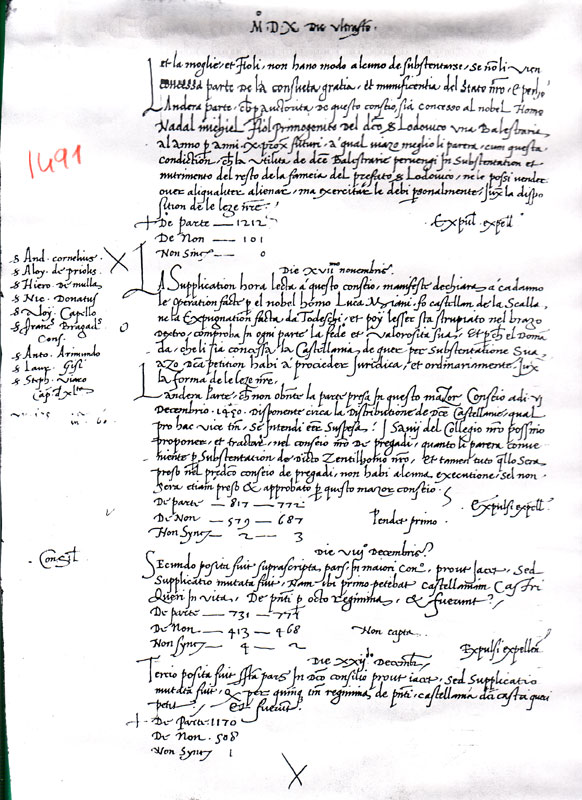 M.D.X Die ultrasto.
et la moglie, et Fioli, non hano modo alcuno de substentarse, se no li vien
concessa parte de la consueta gratia, et munificentia del Stato nro, E perho
Landera parte, che per autorita de questo conseio, sia concesso al nobel Homo
Nadal michiel Fiol primogenito del dco s Lodovico una Balestraria
al anno p anni . X . prox futuri, a qual viazo meglio li parera, cum questa
condiction, che la utilita de dce Balestrarie pervengi in Substentation et
nutrimento del resto de la fameia del prefato s Lodovico, ne le possi vender
over aliqualiter alienar, ma exercitar le debi personalmente, juxta la dispo
sition de le leze nre.
1491
+ De Parte — 1212
De Non — 101
Non Sinc — 0
Expul. expell.
Die XVII novembris.
s And. cornelius
s Aloy. de priolis
s Hiero. De mulla
s Nic. Donatus
s Aloy. Capello
s Franc. Bragad.
Cons.
s Anto. Arimundo
s Laur. Gisi
s Steph. Viaro
Cap. d. Xlta
LA Supplication hora lecta a questo conseio, manifeste dechiara a cadauno
le operation facte p el nobel homo Luca Miani. fo castellan de la Scalla,
ne la Expugnation facta da Todeschi, et poy lesser sta strupiato nel brazo
dextro, comproba in ogni parte la fede et valorosita sua, Et perche el Doma
da, che li sia concessa la Castellania de quer per Substentatione Sua
azo dca petition habi a procieder juridica, et ordinariamente, juxta
la forma de le leze nre,
Landera Parte, che non obstante la parte presa in questo mazor Conseio adi vi
Decembrio . 1490. Disponente circa la Distributione de dce Castellanie, qual
pro hac vice tm, se intendi esser suspesa, I Savij del Collegio nro possino
proponer, et tractar, nel conseio nro de pregadi, quanto li parera conve
niente p substentation de dicto Zentilhomo nro, Et tamen tuto quello sera
preso nel predcto conseio de pregadi, non habi alcuna executione, sel non
sera etiam preso & approbato p questo mazor conseio.
De parte — 817 — 772
De Non — 579 — 687
Non Sync — 2 — 3
Expulsi expell.
Pendet primo.
Die VIIJ Decembris.
Consil.
Secundo posita fuit suprascripta pars in maiori Cono, prout iacet, sed
Supplicatio mutata fuit, Nam ubi primo petebat castellaniam Castri
Queri in vita, De pnti p octo regimina, & fuerunt
De parte — 731 — 771
De Non — 413 — 468
Non sync — 4 — 2
Non capta.
Expulsi expellen.
Die XXIJ Decembris
Tercio posita fuit ssta pars in dco consilio prout iacet, sed Supplicatio
mutata fuit, & per quinq tm regimina de pnti, castellania dci castri queri
petit, et fuerunt
+ De Parte 1170
De Non . 508
Non Sync 1